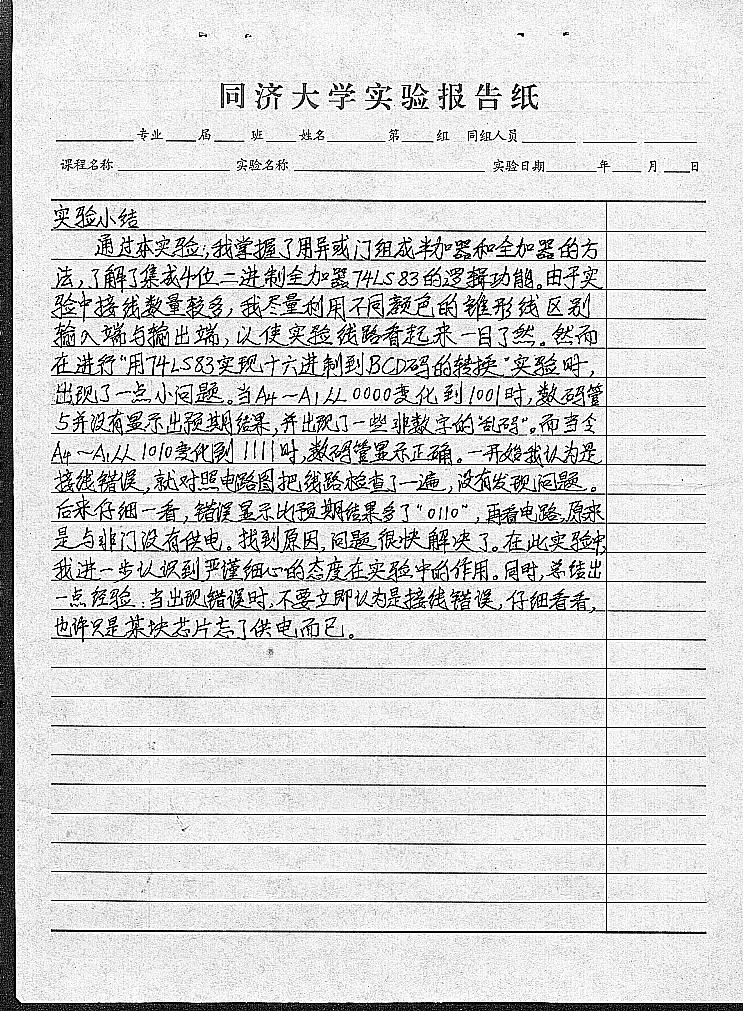 同济大学实验报告纸
专业 届 班 姓名 第 组 同组人员
课程名称 实验名称 实验日期 年 月 日
实验小结
通过本实验,我掌握了用异或门组成半加器和全加器的方
法,了解了集成4位二进制全加器74LS83的逻辑功能。由于实
验中接线数量较多,我尽量利用不同颜色的锥形线区别
输入端与输出端,以使实验线路看起来一目了然。然而
在进行“用74LS83实现十六进制到BCD码的转换”实验时,
出现了一点小问题。当A4~A1从0000变化到1001时,数码管
并没有显示出预期结果,并出现了一些非数字的“乱码”。而当令
A4~A1从1010变化到1111时,数码管显示正确。一开始我认为是
接线错误,就对照电路图把线路检查了一遍,没有发现问题。
后来仔细一看,错误显示比预期结果多了“0110”,再看电路,原来
是与非门没有供电。找到原因,问题很快解决了。在此实验中,
我进一步认识到严谨细心的态度在实验中的作用。同时,总结出
一点经验:当出现错误时,不要立即认为是接线错误,仔细看看,
也许只是某块芯片忘了供电而已。